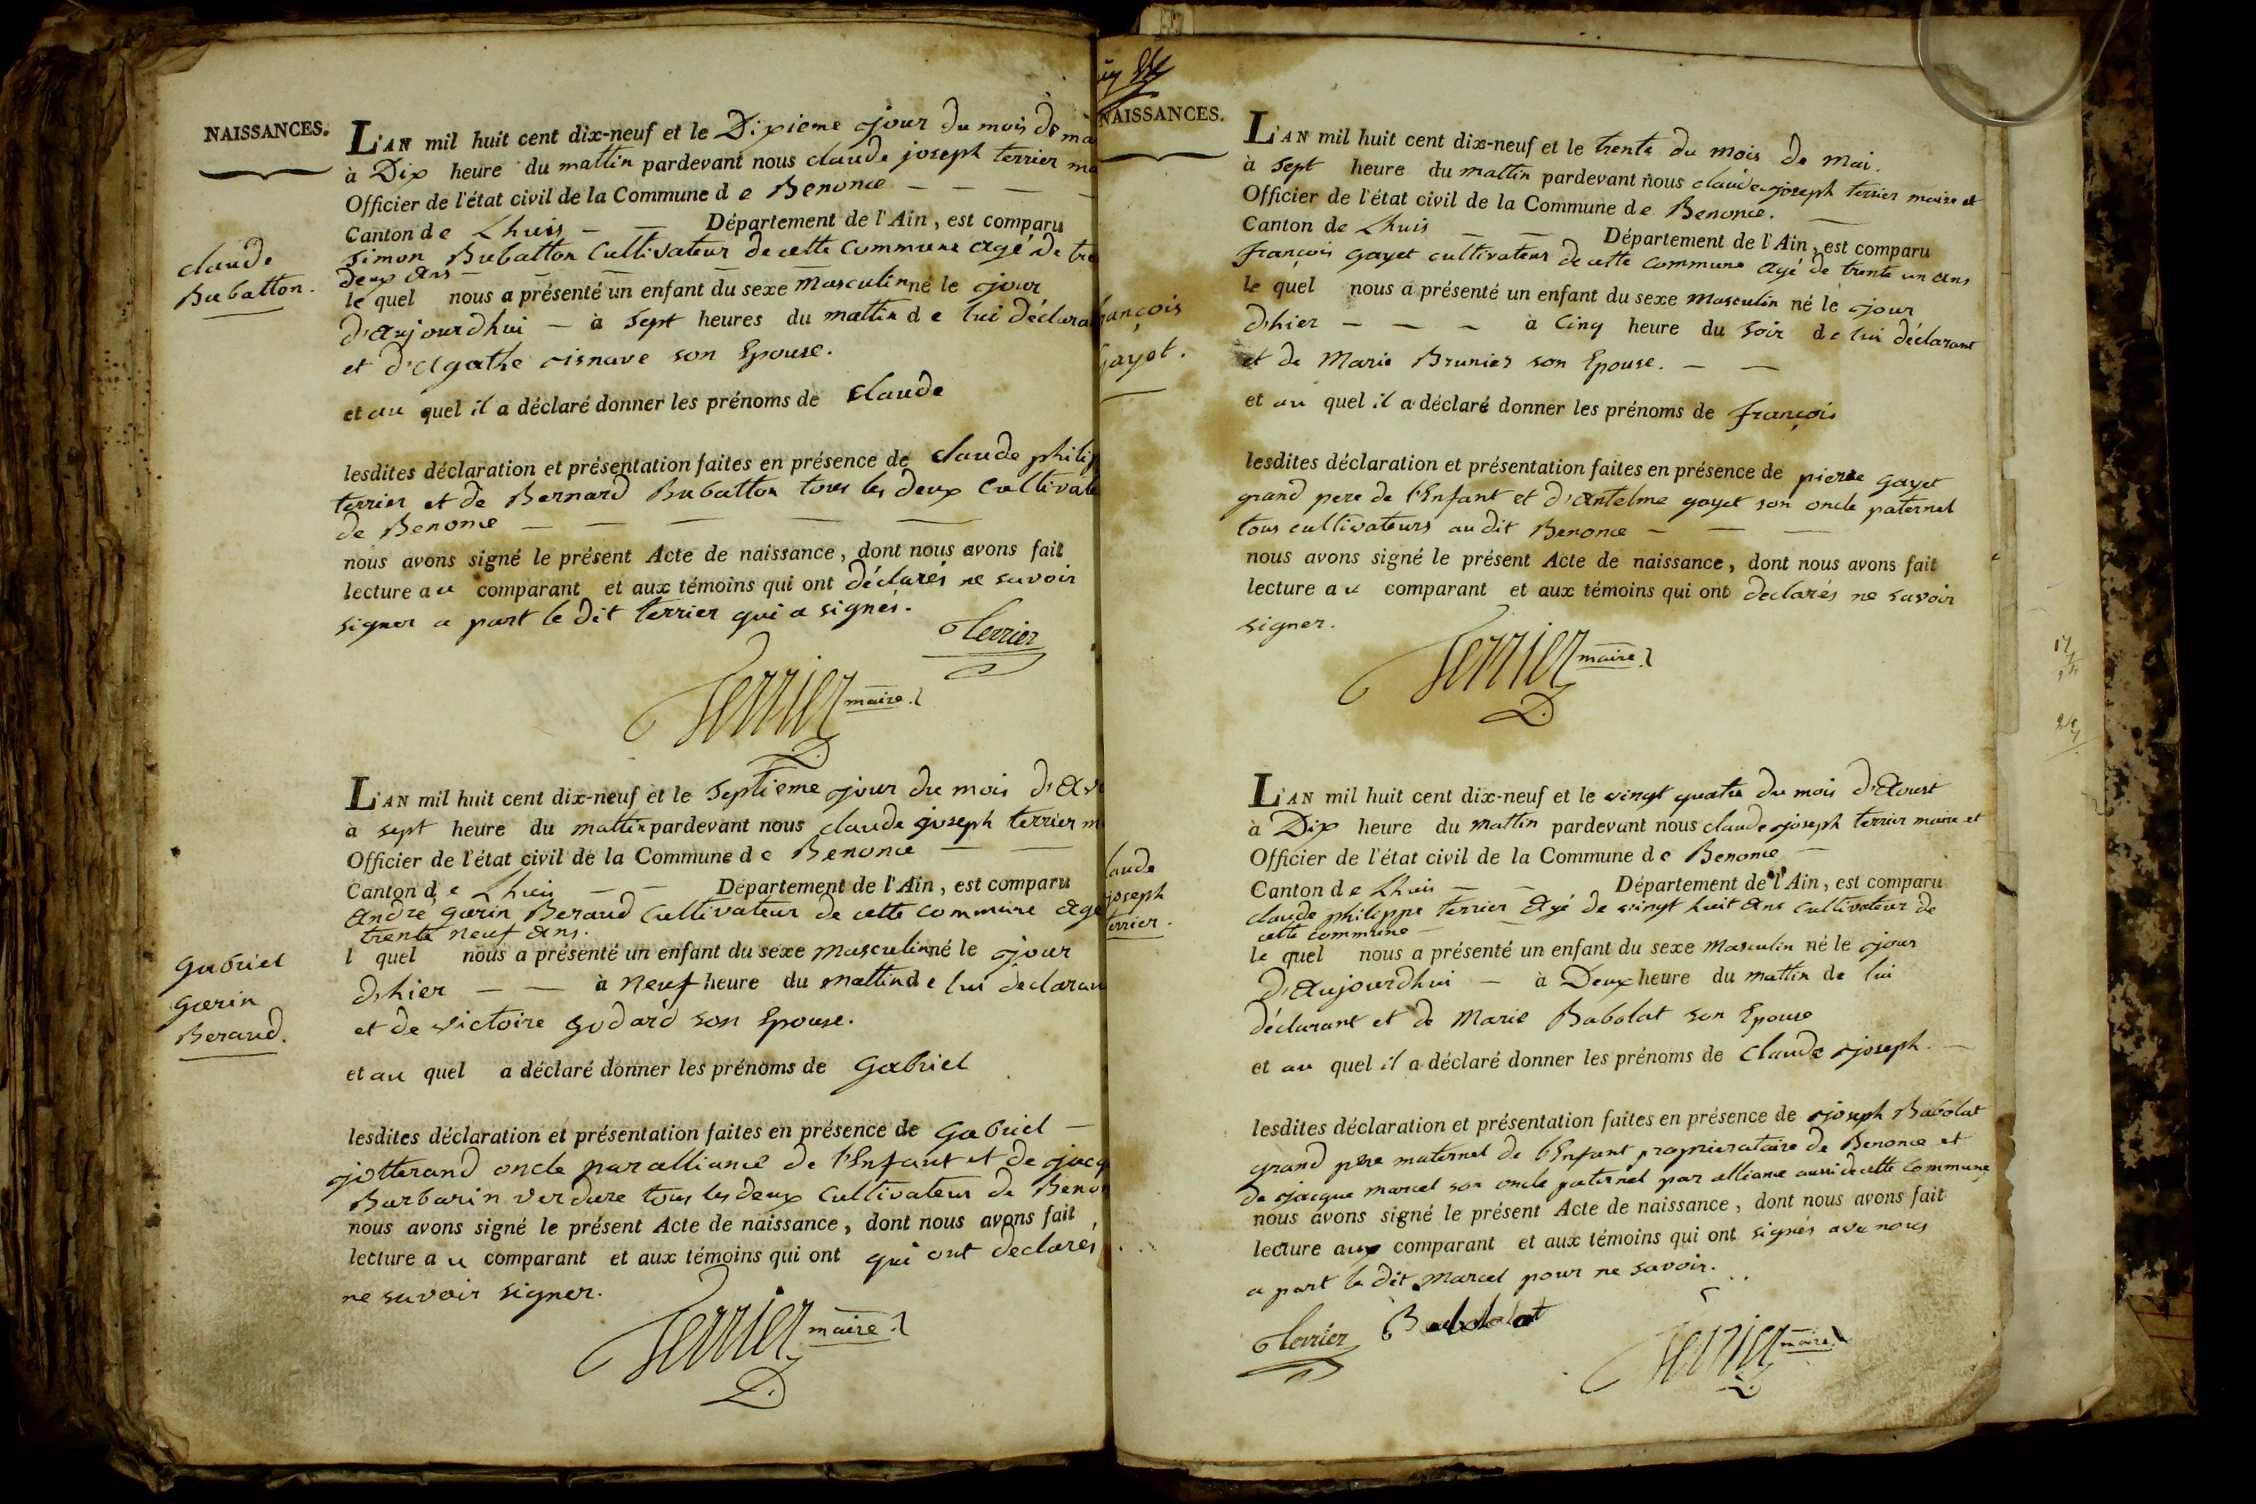 NAISSANCES.
L'AN mil huit cent dix-neuf et le Dixieme jour du mois de ma
à Dix heure du mattin pardevant nous claude joseph terrier ma
Officier de l'état civil de la Commune de Benonce
Canton de Lhuis Département de l'Ain, est comparu
Simon Bubatton Cultivateur de cette Commune agé de tre
deux ans
le quel nous a présenté un enfant du sexe masculin né le jour
d'aujourdhui à sept heures du mattin de lui déclara
et d'agathe cisnave son Epouse.
et au quel il a déclaré donner les prénoms de Claude
lesdites déclaration et présentation faites en présence de claude philip
terrier et de Bernard Bubatton tous les deux Cultivate
de Benonce
nous avons signé le présent Acte de naissance, dont nous avons fait
lecture au comparant et aux témoins qui ont déclarés ne savoir
signer a part le dit terrier qui a signés.
Terrier
Terrier maire
claude
Bubatton.
L'AN mil huit cent dix-neuf et le Septieme jour du mois d'av
à sept heure du mattin pardevant nous claude joseph terrier m
Officier de l'état civil de la Commune de Benonce
Canton de Lhuis Département de l'Ain, est comparu
andré garin Beraud Cultivateur de cette commune age
trente neuf ans.
l quel nous a présenté un enfant du sexe masculin né le jour
d'hier à neuf heure du mattin de lui declaran
et de victoire godard son Epouse.
et au quel a déclaré donner les prénoms de gabriel
lesdites déclaration et présentation faites en présence de gabriel
jotterand oncle par alliance de l'Enfant et de jacq
Barbarin verdure tous les deux Cultivateur de Benon
nous avons signé le présent Acte de naissance, dont nous avons fait
lecture au comparant et aux témoins qui ont qui ont declarés
ne savoir signer.
Terrier maire
gabriel
garin
Beraud.
NAISSANCES.
L'AN mil huit cent dix-neuf et le trente du mois de mai.
à sept heure du mattin pardevant nous claude joseph terrier maire et
Officier de l'état civil de la Commune de Benonce.
Canton de Lhuis Département de l'Ain, est comparu
françois gayet cultivateur de cette commune agé de trente un ans
le quel nous a présenté un enfant du sexe masculin né le jour
d'hier à Cinq heure du soir de lui déclarant
et de Marie Brunier son Epouse.
et au quel il a déclaré donner les prénoms de françois
lesdites déclaration et présentation faites en présence de pierre gayet
grand pere de l'Enfant et d'antelme gayet son oncle paternel
tous cultivateurs au dit Benonce
nous avons signé le présent Acte de naissance, dont nous avons fait
lecture au comparant et aux témoins qui ont declarés ne savoir
signer.
Terrier maire
ançois
gayet.
L'AN mil huit cent dix-neuf et le vingt quatre du mois d'Aoust
à Dix heure du mattin pardevant nous claude joseph terrier maire et
Officier de l'état civil de la Commune de Benonce
Canton de Lhuis Département de l'Ain, est comparu
claude philippe terrier agé de vingt huit ans cultivateur de
cette commune
le quel nous a présenté un enfant du sexe masculin né le jour
d'aujourdhui à Deux heure du mattin de lui
déclarant et de Marie Babolat son Epouse
et au quel il a déclaré donner les prénoms de Claude joseph.
lesdites déclaration et présentation faites en présence de joseph Babolat
grand père maternel de l'Enfant proprieretaire de Benonce et
de jacque marcel son oncle paternel par alliance aussi de cette Commune
nous avons signé le présent Acte de naissance, dont nous avons fait
lecture aux comparant et aux témoins qui ont signés avec nous
a part le dit marcel pour ne savoir.
Terrier Babolat
Terrier maire
laude
joseph
terrier.